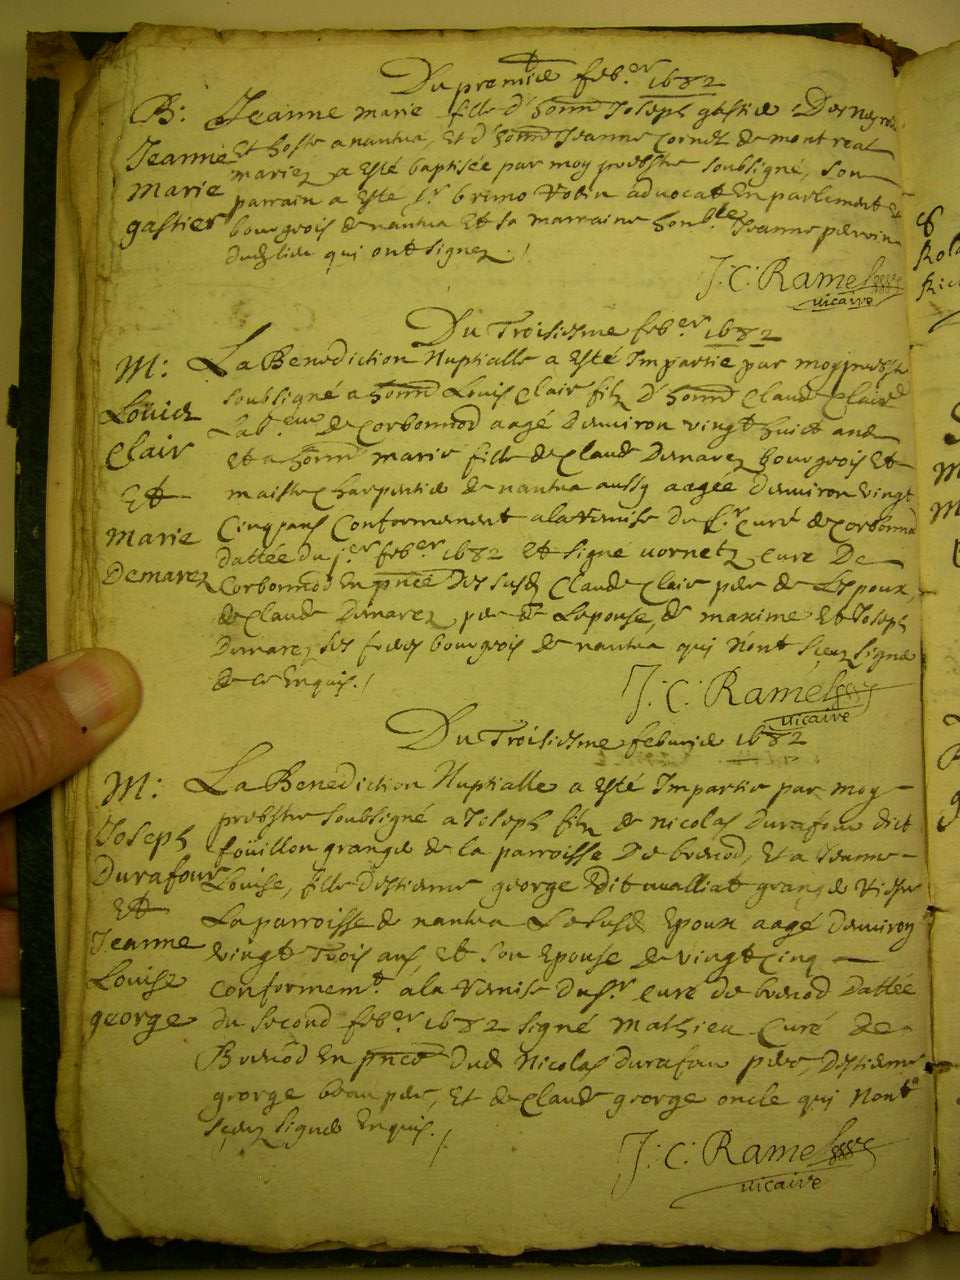 Du premie feb.er 1682
B: Jeanne marie fille d'honn Joseph gastie
Jeanne Et hoste a nantua, Et d'honn Jeanne Cornet de montreal
Marie mariez a esté baptisée par moy prebstre soubsigné, son
gastier parrain a este s.r advocat En parlement et
bourgeois de nantua Et sa marraine honb.le Jeanne
qui ont signez ./
J: C: Ramel
vicaire
Du Troisiesme feb.er 1682
M: La Benediction Nuptialle a Esté Impartie par moy prebstre
Louis soubsigné a honn Louis Clair filz d'honn Claude Clair
Clair Lab.eur de Corbonnod aagé denviron vingt huict ans
Et Et a honn marie fille de Claude Demarez bourgeois Et
maistre Charpentie de nantua aussy aagée denviron vingt
Marie Cinq ans Conformement a la remise du s.r curé de Corbonnod
Demarez dattée du j.er feb.er 1682 Et signé vornetz curé De
Corbonnod En pnce Des susd Claude Clair pere de Lespoux,
de Claude Demarez pere de Lepouse, de maxime Et Joseph
Demarez ses freres bourgeois de nantua qui Nont sceu signé
de ce Enquis ./
J: C: Ramel
vicaire
Du Troisiesme febvrie 1682
M: La Benediction Nuptialle a Esté Impartie par moy
Joseph prebstre soubsigné a Joseph filz de nicolas Durafour dict
Durafour foüillon grange de la parroisse De brenod, Et a Jeanne
Et Louise, fille d'estienne george Dit grange
Jeanne La parroisse de nantua Le susd Epoux aagé denviron
Louise vingt Trois ans, Et son Epouse de vingt Cinq
george Conformem.t a la remise du s.r curé de brenod Dattée
du second feb.er 1682 signé Mathieu Curé de
Brenod En pnce dud Nicolas durafour pere, d'estienne
george beau pere, Et de Claude george oncle qui Nont
sceu signé Enquis ./
J: C: Ramel
vicaire